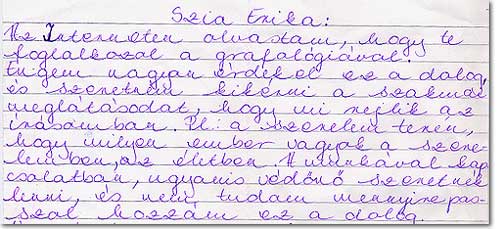 Szia Erika:
Az Interneten olvastam, hogy te
foglalkozol a grafológiával.
Engem nagyon érdekel ez a dolog,
és szeretném kikérni a szakmai
meglátásodat, hogy mi rejlik az
írásomban. Pl: a szerelem terén,
hogy milyen ember vagyok a szere-
lemben, az életben. A munkával kap-
csolatban, ugyanis védőnő szeretnék
lenni, és nem tudom mennyire pas-
szol hozzám ez a dolog.